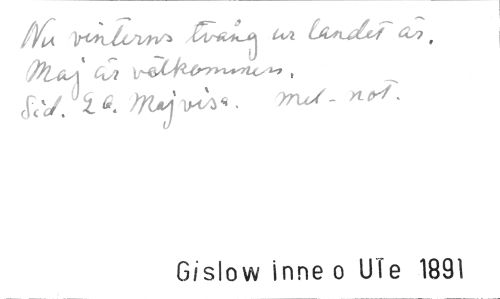 Nu vinterns tvång ur landet är.
Maj är välkommen.
Sid. 26. Majvisa. mel-not.
Gislow inne o Ute 1891